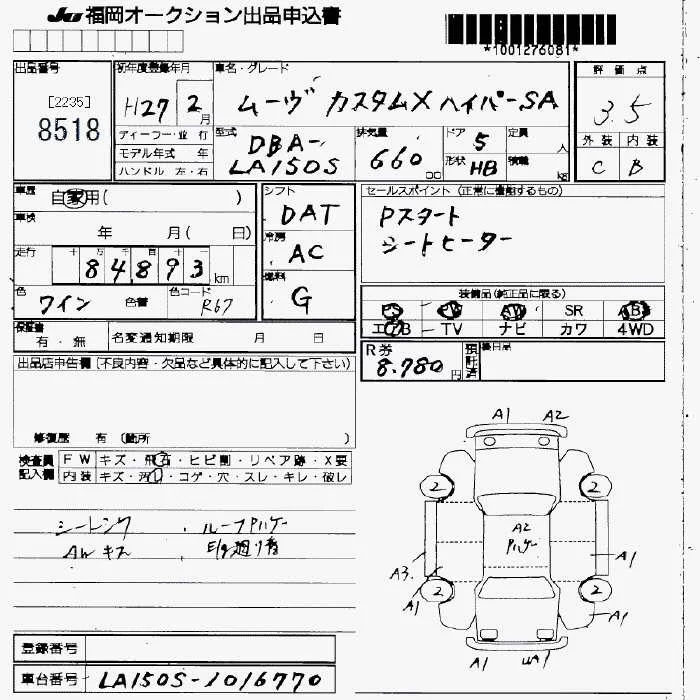 JU 福岡オークション出品申込書
*1001276081*
出品番号 [2235] 8518
初年度登録年月 H27 2月
車名・グレード ムーヴ カスタムX ハイパーSA
評価点 3.5
外装 C 内装 B
ディーラー・並行
モデル年式 年
ハンドル 左・右
型式 DBA-LA150S
排気量 660 cc
ドア 5
形状 HB
定員 人
積載 kg
車歴 自家用( )
車検 年 月( 日)
走行 十 万 千 百 十 84893 km
色 ワイン 色替 色コード R67
シフト DAT
冷房 AC
燃料 G
セールスポイント (正常に機能するもの)
Pスタート
シートヒーター
装備品(純正品に限る)
PS PW AW SR AB
エアB TV ナビ カワ 4WD
保証書 有・無
名変通知期限 月 日
R券 8.780円
預託済
後日品
出品店申告欄(不良内容・欠品など具体的に記入して下さい)
修復歴 有 (箇所 )
検査員記入欄
FW キズ・飛石・ヒビ割・リペア跡・X要
内装 キズ・汚れ・コゲ・穴・スレ・キレ・破レ
シーリング ・ルーフPハゲ
AW キズ
A1 A2
2 2
A2
Pハゲ
A3 A1
A1
2 2
A1
A1
登録番号
車台番号 LA150S-1016770